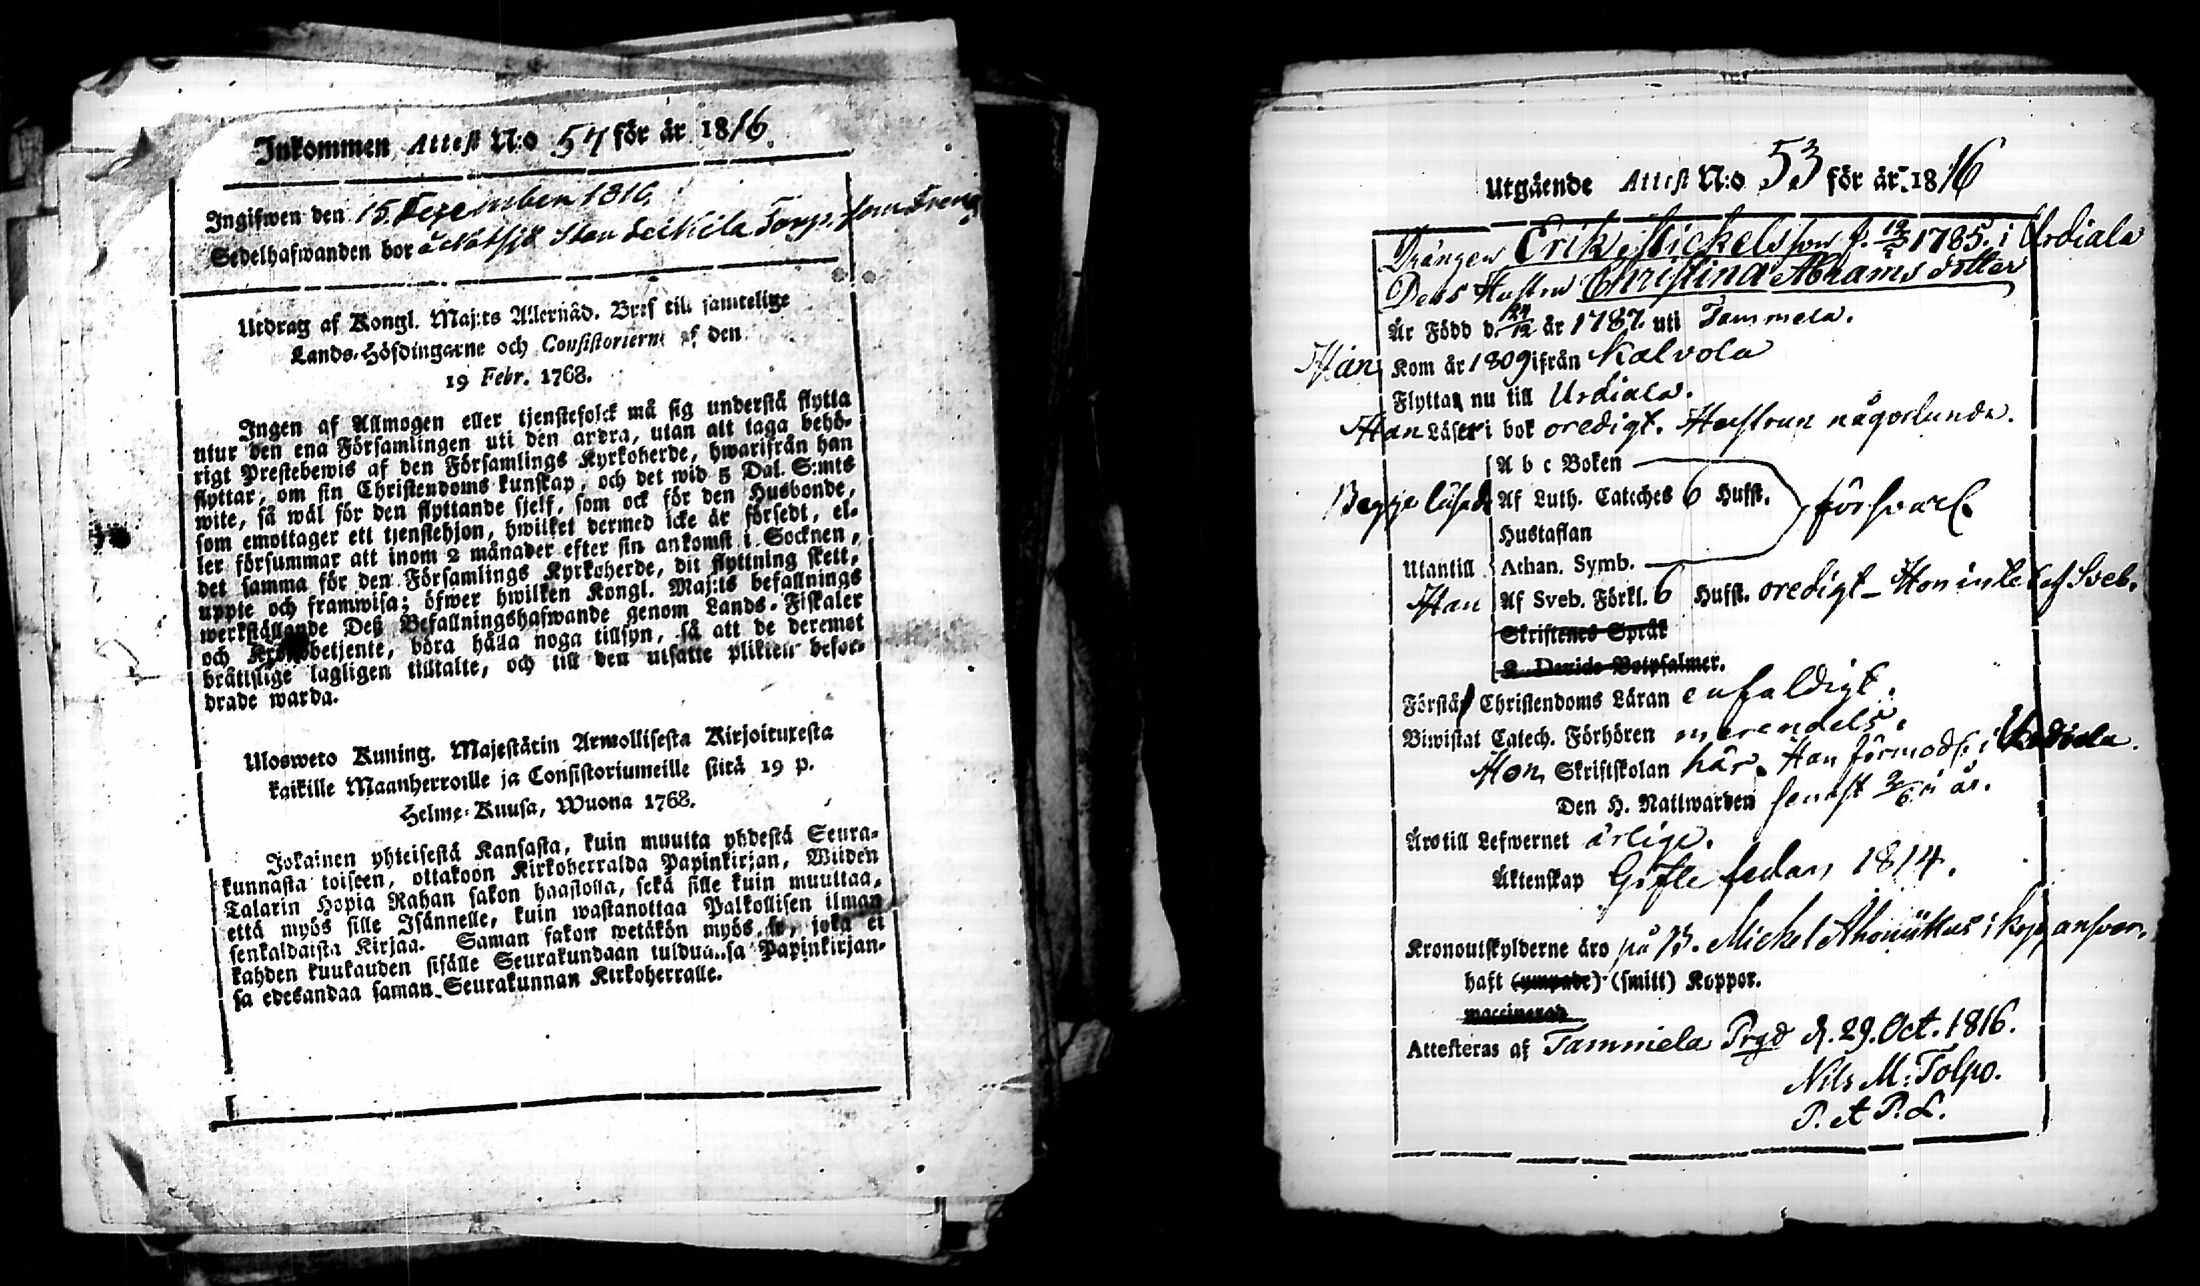 Inkommen Attest N:o 57 för år 1816.
Ingifwen den 15. Dezember 1816.
Sedelhafwanden bor å Nåtsjö Torp. som Dreng
Utdrag af Kongl. Maj:ts Allernåd. Bref till samtelige
Lands-Höfdingarne och Consistorierne af den
19 Febr. 1768.
Ingen af Allmogen eller tjenstefolck må sig understå flytta
utur den ena Församlingen uti den andra, utan att taga behö-
rigt Prestebewis af den Församlings Kyrkoherde, hwarifrån han
flyttar, om sin Christendoms kunskap, och det wid 5 Dal. S:mts
wite, så wäl för den flyttande sjelf, som ock för den Husbonde,
som emottager ett tjenstehjon, hwilket dermed icke är försedt, el-
ler försummar att inom 2 månader efter sin ankomst i Socknen,
det samma för den Församlings Kyrkoherde, dit flyttning skett,
uppte och framwisa; öfwer hwilken Kongl. Maj:ts befallnings
werkställande Deß Befallningshafwande genom Lands-Fiskaler
och Kronobetjente, böra hålla noga tillsyn, så att de deremot
bråttslige lagligen tilltalte, och till den utsatte plikten befor-
drade warda.
Ulosweto Kuning. Majestätin Armollisesta Kirjoituxesta
kaikille Maanherroille ja Consistoriumeille siitä 19 p.
Helme-Kuusa, Wuona 1768.
Jokainen yhteisestä Kansasta, kuin muutta yhdestä Seura-
kunnasta toiseen, ottakoon Kirkoherralda Papinkirjan, Wiiden
Talarin Hopia Rahan sakon haastolla, sekä sille kuin muuttaa,
että myös sille Isännelle, kuin wastanottaa Palkollisen ilman
senkaldaista Kirjaa. Saman sakon wetäkön myös se, joka ei
kahden kuukauden sisälle Seurakundaan tulduansa Papinkirjan-
sa edesandaa saman Seurakunnan Kirkoherralle.
Utgående Attest N:o 53 för år 1816
Drängen Erik Mickelsson f. 12/3 1785. i Urdiala
Dess Hustru Christina Abrams dotter
Är Född d. 24/12 år 1787. uti Tammela.
Han Kom år 1809 ifrån Kalvola
Flyttar nu till Urdiala.
Han Läser i bok oredigt. Hustrun någorlunda.
A b c Boken
Begge läsa Af Luth. Cateches 6 Hufst. försvarl.
Hustaflan
Utantill Athan. Symb.
Han Af Sveb. Förkl. 6 Hufst. oredigt - Hon intet af Sveb.
Skriftenes Språk
K. Davids Botpsalmer.
Förstår Christendoms Läran enfaldigt.
Biwistat Catech. Förhören merendels.
Hon Skriftskolan här. Han förmodl. i Urdiala.
Den H. Nattwarden senast 2/6 i år.
Äro till Lefwernet ärlige.
Äktenskap Gifte sedan 1814.
Kronoutskylderne äro på B. Michel Ahoniittus i Kopp. ansvar.
haft (ympade) (smitt) Koppor.
waccinerad
Attesteras af Tammela Prgd d. 29. Oct. 1816.
Nils M: Tolpo.
P. A P. L.